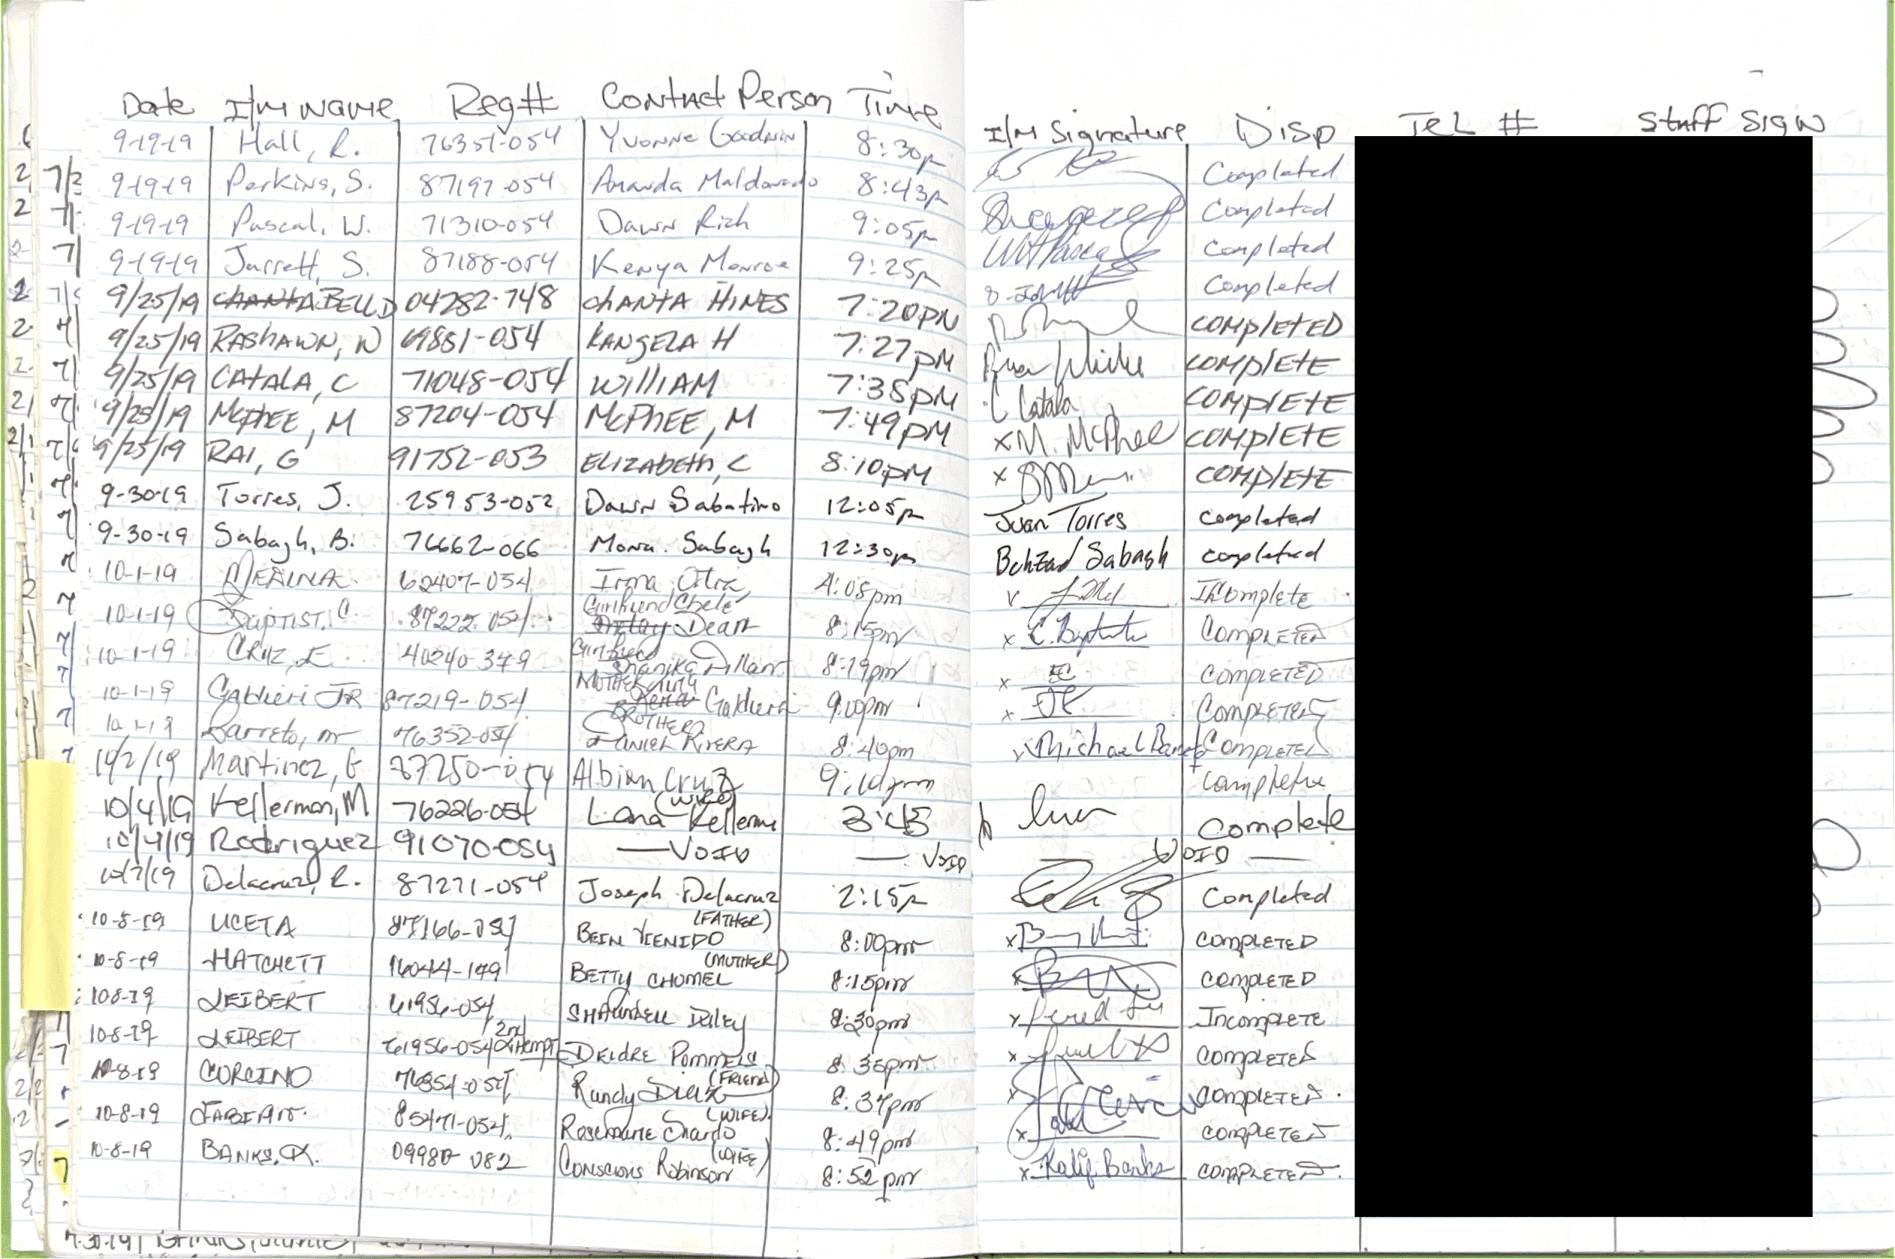 Date I/M Name Reg# Contact Person Time I/M Signature Disp Tel # Staff Sign
9-19-19 Hall, R. 76351-054 Yvonne Goodwin 8:30p Completed
9-19-19 Perkins, S. 87197-054 Amanda Maldonado 8:43p Completed
9-19-19 Pascal, W. 71310-054 Dawn Rich 9:05p Completed
9-19-19 Jarrett, S. 87188-054 Kenya Monroe 9:25p Completed
9/25/19 CHANTA BELL D 04282-748 CHANTA HINES 7:20PM COMPLETED
9/25/19 RASHAWN, W 69881-054 KANGELA H 7:27PM COMPLETE
9/25/19 CATALA, C 71048-054 WILLIAM 7:38PM C Catala COMPLETE
9/25/19 McPHEE, M 87204-054 McPHEE, M 7:49PM X M. McPhee COMPLETE
9/25/19 RAI, G 91752-053 ELIZABETH, C 8:10PM X COMPLETE
9-30-19 Torres, J. 25953-052 Dawn Sabatino 12:05p Juan Torres Completed
9-30-19 Sabagh, B. 76662-066 Mona Sabagh 12:30p Behzad Sabagh completed
10-1-19 62407-054 Irma 4:08pm Incomplete
10-1-19 BAPTIST, C. 87222-054 Girlfriend Dean 8:15pm x C. Baptiste COMPLETED
10-1-19 CRUZ, E 40240-379 Girlfriend 8:29pm x EC COMPLETED
10-1-19 JR 87219-054 MOTHER 9:00pm x COMPLETED
10-1-19 Barreto, m 76352-054 BROTHER DANIEL RIVERA 8:40pm x Michael Barreto COMPLETED
10/2/19 Martinez, G 87250-054 Albian Cruz 9:10pm Complete
10/4/19 Kellerman, M 76226-054 Lana Kellerman (wife) 3:45 Complete
10/4/19 Rodriguez 91070-054 — VOID — VOID — VOID —
10/7/19 Delacruz, R. 87271-054 Joseph Delacruz 2:15p Completed
10-8-19 UCETA 87166-054 BEIN VIENIDO (FATHER) 8:00pm x COMPLETED
10-8-19 HATCHETT 16044-149 BETTY CHOMEL (MOTHER) 8:15pm x COMPLETED
10-8-19 LEIBERT 61956-054 8:30pm x Incomplete
10-8-19 LEIBERT 61956-054 2nd attempt DEIDRE POMMELS 8:36pm x COMPLETED
10-8-19 CORCINO 76854-054 Randy Diaz (FRIEND) 8:37pm x COMPLETED
10-8-19 FABIAN 85471-054 Rosemarie (WIFE) 8:49pm x COMPLETED
10-8-19 BANKS, K. 09980-082 Conscious Robinson (WIFE) 8:52pm x Kalif Banks COMPLETED